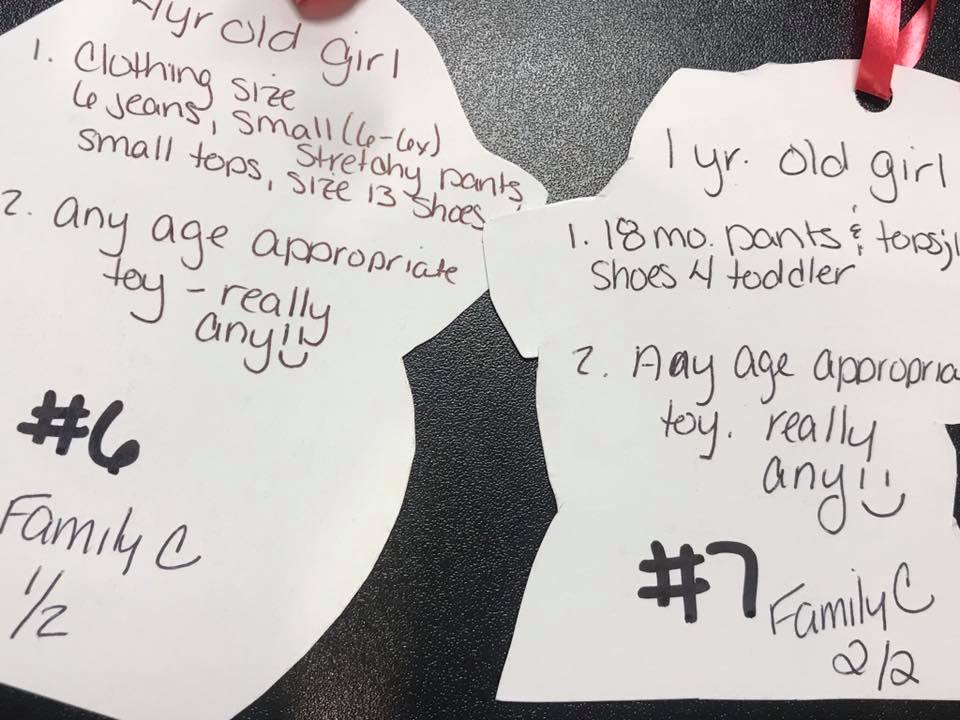 4yr old girl
1. Clothing size
6 jeans, small (6-6x)
stretchy pants,
small tops, size 13 shoes
2. any age appropriate
toy - really
any!!
#6
Family C
1/2
1 yr. old girl
1. 18 mo. pants & tops;
shoes 4 toddler
2. Any age appropria
toy. really
any!!
#7
Family C
2/2